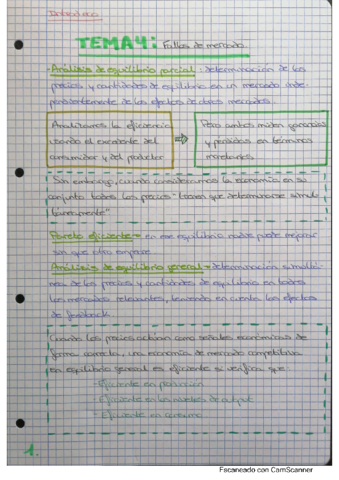 TEMA 4: Fallos de mercado.
- Análisis de equilibrio parcial: determinación de los
precios y cantidades de equilibrio en un mercado inde-
pendientemente de los efectos de otros mercados.
Analizamos la eficiencia
usando el excedente del
consumidor y del productor
⇒
Pero ambos miden ganancias
y pérdidas en términos
monetarios
Sin embargo, cuando consideramos la economía en su
conjunto todos los precios tienen que determinarse simul-
táneamente"
Pareto eficiente → en ese equilibrio nadie puede mejorar
sin que otro empeore
Análisis de equilibrio general → determinación simultá-
nea de los precios y cantidades de equilibrio en todos
los mercados relevantes, teniendo en cuenta los efectos
de feedback
Cuando los precios actúan como señales económicas de
forma correcta, una economía de mercado competitiva
en equilibrio general es eficiente si verifica que:
- Eficiente en producción
- Eficiente en los niveles de output
- Eficiente en consumo
1.
Escaneado con CamScanner